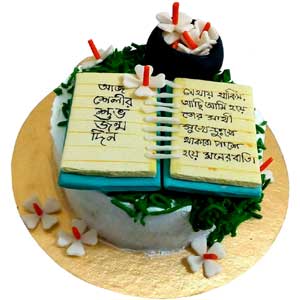 আজ
শেলীর
শুভ
জন্ম
দিন
যেথায় থাকিস,
আছি আমি হয়ে
তোর সাথী
সুখে দুঃখে
থাকবো পাশে
হয়ে মনের বাতি।